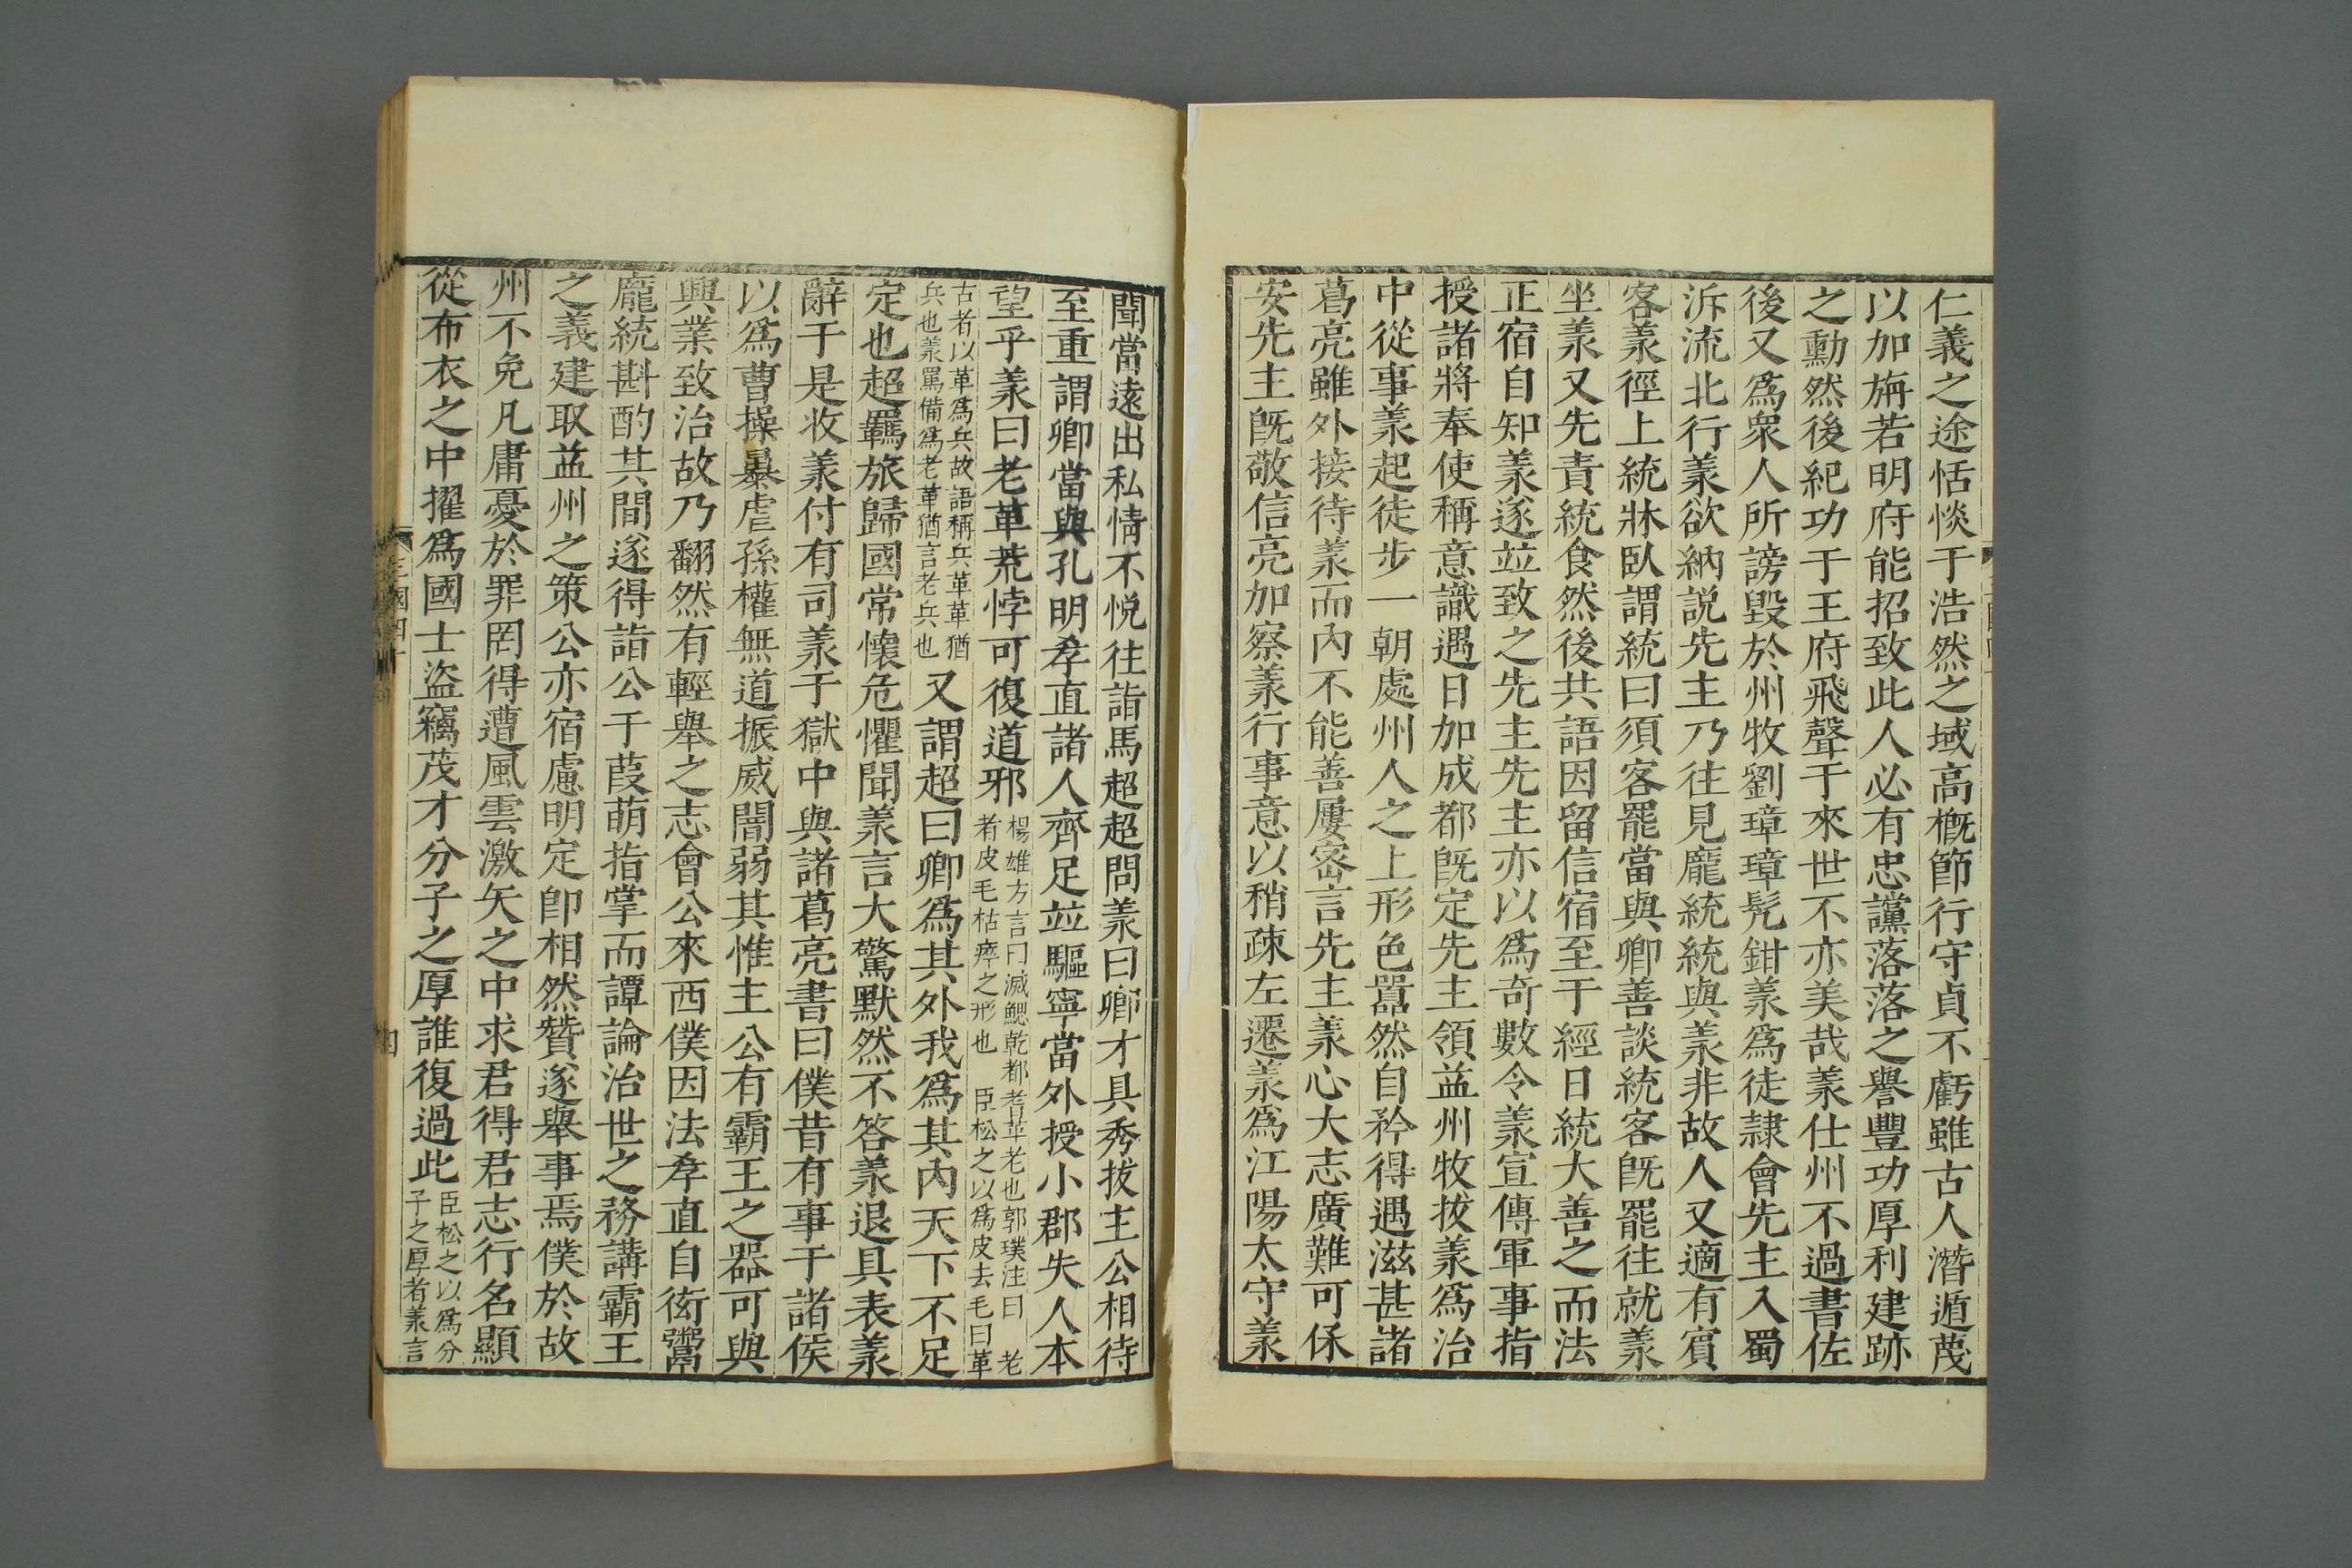 仁義之途恬惔于浩然之域高槪節行守貞不虧雖古人潛遁蔑
以加旃若明府能招致此人必有忠讜落落之譽豐功厚利建跡
之勳然後紀功于王府飛聲于來世不亦美哉羕仕州不過書佐
後又爲衆人所謗毀於州牧劉璋璋髡鉗羕爲徒隷會先主入蜀
泝流北行羕欲納説先主乃往見龐統統與羕非故人又適有賓
客羕徑上統牀臥謂統曰須客罷當與卿善談統客旣罷往就羕
坐羕又先責統食然後共語因留信宿至于經日統大善之而法
正宿自知羕遂竝致之先主先主亦以爲奇數令羕宣傳軍事指
授諸將奉使稱意識遇日加成都旣定先主領益州牧拔羕爲治
中從事羕起徒步一朝處州人之上形色囂然自矜得遇滋甚諸
葛亮雖外接待羕而內不能善屢密言先主羕心大志廣難可保
安先主旣敬信亮加察羕行事意以稍疎左遷羕爲江陽太守羕
聞當遠出私情不悅往詣馬超超問羕曰卿才具秀拔主公相待
至重謂卿當與孔明孝直諸人齊足竝驅寧當外授小郡失人本
望乎羕曰老革荒悖可復道邪
楊雄方言曰㓕鰓乾都耇革老也郭璞注曰老
者皮毛枯瘁之形也 臣松之以爲皮去毛曰革
古者以革爲兵故語稱兵革革猶
兵也羕罵備爲老革猶言老兵也
又謂超曰卿爲其外我爲其內天下不足
定也超羈旅歸國常懷危懼聞羕言大驚默然不答羕退具表羕
辭于是收羕付有司羕于獄中與諸葛亮書曰僕昔有事于諸侯
以爲曹操暴虐孫權無道振威闇弱其惟主公有霸王之器可與
興業致治故乃翻然有輕舉之志會公來西僕因法孝直自衒鬻
龐統斟酌其間遂得詣公于葭萌指掌而譚論治世之務講霸王
之義建取益州之策公亦宿慮明定卽相然贊遂舉事焉僕於故
州不免凡庸憂於罪罔得遭風雲激矢之中求君得君志行名顯
從布衣之中擢爲國士盜竊茂才分子之厚誰復過此
臣松之以爲分
子之厚者羕言